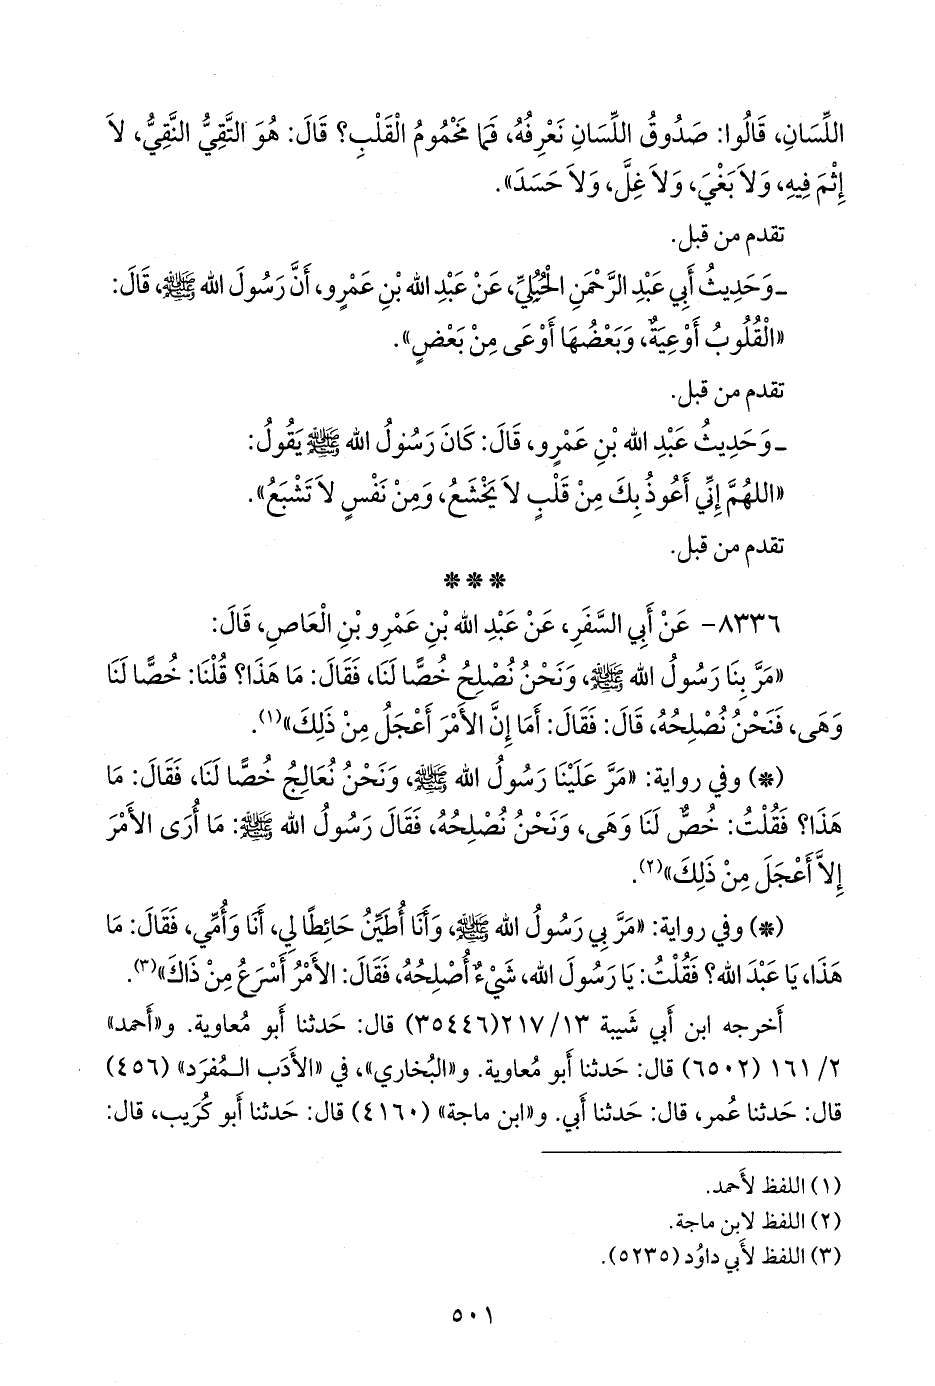 اللِّسَانِ، قَالُوا: صَدُوقُ اللِّسَانِ نَعْرِفُهُ، فَمَا مَخْمُومُ الْقَلْبِ؟ قَالَ: هُوَ التَّقِيُّ النَّقِيُّ، لاَ
إِثْمَ فِيهِ، وَلاَ بَغْيَ، وَلاَ غِلَّ، وَلاَ حَسَدَ».
تقدم من قبل.
ـ وَحَدِيثُ أَبِي عَبْدِ الرَّحْمَنِ الْحُبُلِيِّ، عَنْ عَبْدِ الله بْنِ عَمْرٍو، أَنَّ رَسُولَ الله ﷺ، قَالَ:
«الْقُلُوبُ أَوْعِيَةٌ، وَبَعْضُهَا أَوْعَى مِنْ بَعْضٍ».
تقدم من قبل.
ـ وَحَدِيثُ عَبْدِ الله بْنِ عَمْرٍو، قَالَ: كَانَ رَسُولُ الله ﷺ يَقُولُ:
«اللهُمَّ إِنِّي أَعُوذُ بِكَ مِنْ قَلْبٍ لاَ يَخْشَعُ، وَمِنْ نَفْسٍ لاَ تَشْبَعُ».
تقدم من قبل.
* * *
٨٣٣٦- عَنْ أَبِي السَّفَرِ، عَنْ عَبْدِ الله بْنِ عَمْرِو بْنِ الْعَاصِ، قَالَ:
«مَرَّ بِنَا رَسُولُ الله ﷺ، وَنَحْنُ نُصْلِحُ خُصًّا لَنَا، فَقَالَ: مَا هَذَا؟ قُلْنَا: خُصًّا لَنَا
وَهَى، فَنَحْنُ نُصْلِحُهُ، قَالَ: فَقَالَ: أَمَا إِنَّ الأَمْرَ أَعْجَلُ مِنْ ذَلِكَ»(١).
(*) وفي رواية: «مَرَّ عَلَيْنَا رَسُولُ الله ﷺ، وَنَحْنُ نُعَالِجُ خُصًّا لَنَا، فَقَالَ: مَا
هَذَا؟ فَقُلْتُ: خُصٌّ لَنَا وَهَى، وَنَحْنُ نُصْلِحُهُ، فَقَالَ رَسُولُ الله ﷺ: مَا أُرَى الأَمْرَ
إِلاَّ أَعْجَلَ مِنْ ذَلِكَ»(٢).
(*) وفي رواية: «مَرَّ بِي رَسُولُ الله ﷺ، وَأَنَا أُطَيِّنُ حَائِطًا لِي، أَنَا وَأُمِّي، فَقَالَ: مَا
هَذَا، يَا عَبْدَ الله؟ فَقُلْتُ: يَا رَسُولَ الله، شَيْءٌ أُصْلِحُهُ، فَقَالَ: الأَمْرُ أَسْرَعُ مِنْ ذَاكَ»(٣).
أَخرجه ابن أَبي شَيبة ١٣/ ٢١٧(٣٥٤٤٦) قال: حَدثنا أَبو مُعاوية. و«أَحمد»
٢/ ١٦١ (٦٥٠٢) قال: حَدثنا أَبو مُعاوية. و«البُخاري»، في «الأَدَب الـمُفرَد» (٤٥٦)
قال: حَدثنا عُمر، قال: حَدثنا أَبي. و«ابن ماجة» (٤١٦٠) قال: حَدثنا أَبو كُرَيب، قال:
(١) اللفظ لأَحمد.
(٢) اللفظ لابن ماجة.
(٣) اللفظ لأَبي داوُد (٥٢٣٥).
٥٠١